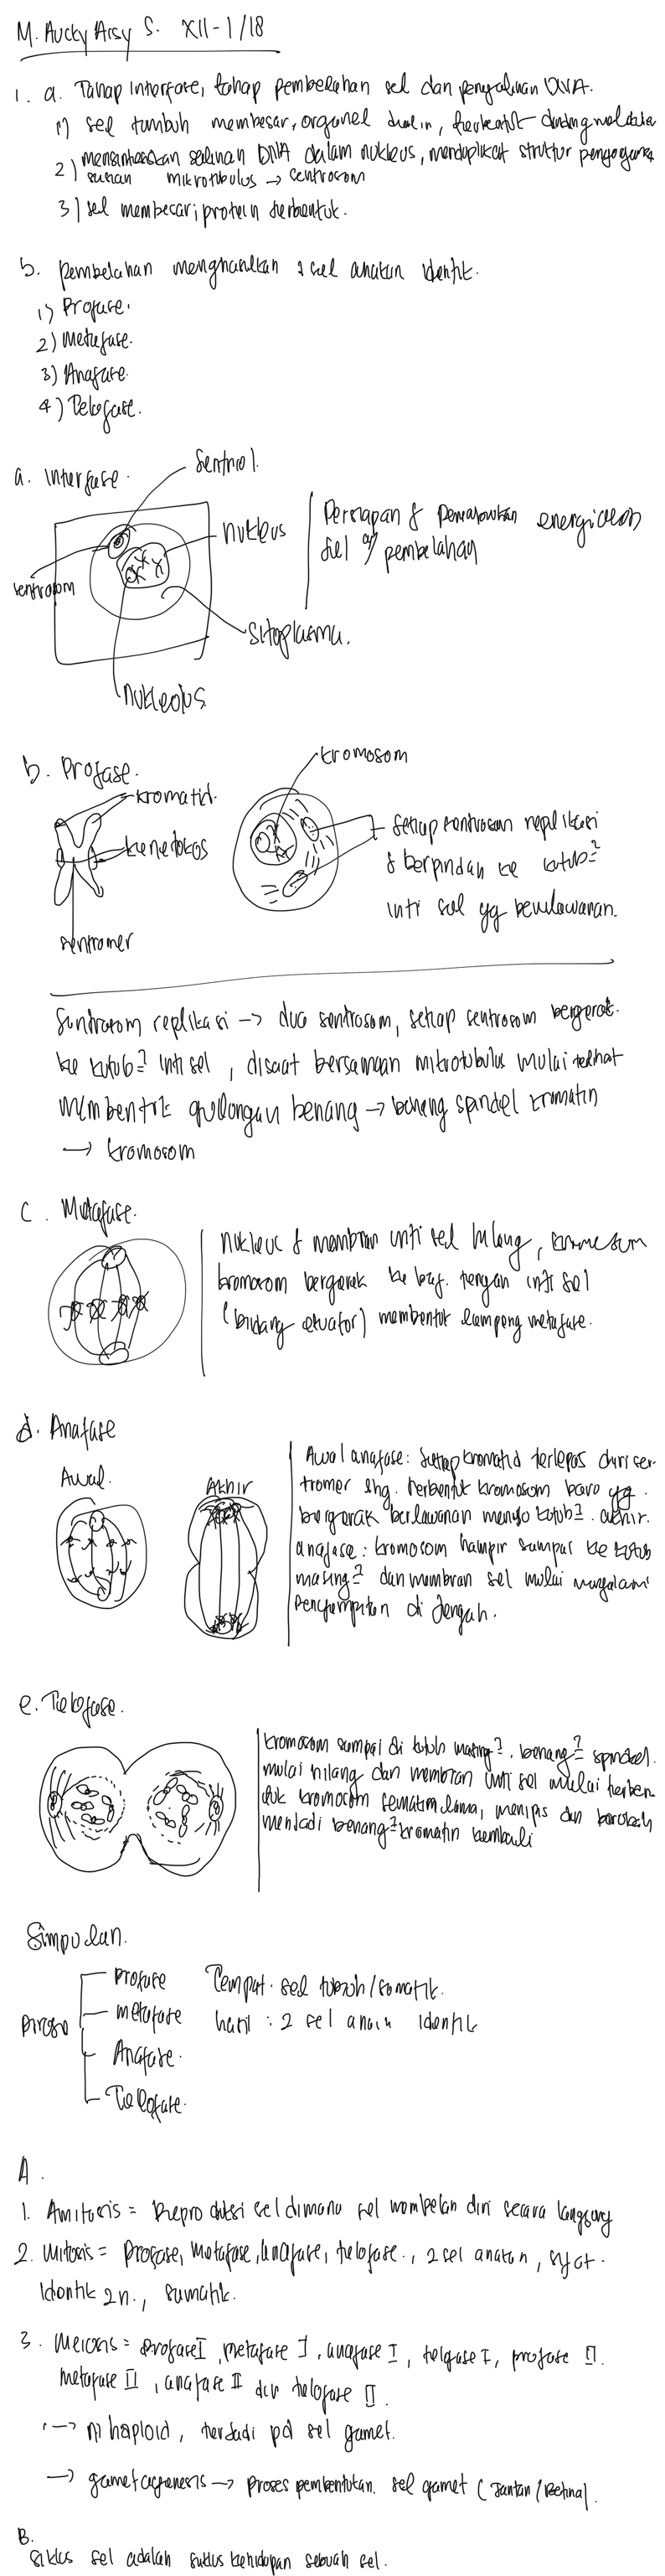 M. Aucky Arsy S. XII-1/18
1. a. Tahap Interfase, tahap pembelahan sel dan penyalinan DNA.
1) sel tumbuh membesar, organel disalin, terbentuk dinding
2) mensintesiskan salinan DNA dalam nukleus, menduplikat struktur
mikrotubulus → centrosom
3) sel membesar, protein terbentuk.
b. pembelahan menghasilkan 2 sel anakan identik.
1) Profase.
2) Metafase.
3) Anafase.
4) Telofase.
a. Interfase.
Sentriol.
nukleus
sentrosom
Sitoplasma.
nukleolus
Persiapan & energi
sel pembelahan
b. Profase.
kromatid.
kinetokos
sentromer
kromosom
Setiap sentrosom replikasi
& berpindah ke kutub²
inti sel yg berlawanan.
Sentrosom replikasi → dua sentrosom, setiap sentrosom bergerak
ke kutub² inti sel, disaat bersamaan mikrotubulus mulai terlihat
membentuk gulongan benang → benang spindel kromatin
→ kromosom
c. Metafase.
nukleus & membran inti sel hilang,
kromosom bergerak ke bag. tengah inti sel
(bidang ekuator) membentuk lempeng metafase.
d. Anafase
Awal
Akhir
Awal anafase: Setiap kromatid terlepas dari sen-
tromer shg. terbentuk kromosom baru yg.
bergerak berlawanan menuju kutub². akhir.
anafase: kromosom hampir sampai ke kutub
masing² dan membran sel mulai mengalami
penyempitan di tengah.
e. Telofase.
kromosom sampai di kutub masing². benang² spindel.
mulai hilang dan membran inti sel mulai terben
tuk kromosom semakin lama, menipis dan berubah
menjadi benang² kromatin kembali
Simpulan.
profase Tempat: sel tubuh/somatik.
metafase hasil: 2 sel anakan identik
Anafase.
Telofase.
A.
1. Amitosis = Reproduksi sel dimana sel membelah diri secara langsung
2. Mitosis = Profase, Metafase, anafase, telofase., 2 sel anakan, sifat.
Identik 2n., sumatik.
3. Meiosis = Profase I, metafase I, anafase I, telofase I, profase II.
metafase II, anafase II dan telofase II.
→ n haploid, terjadi pd sel gamet.
→ gametogenesis → proses pembentukan. sel gamet (Jantan/Betina).
B.
Siklus sel adalah siklus kehidupan sebuah sel.